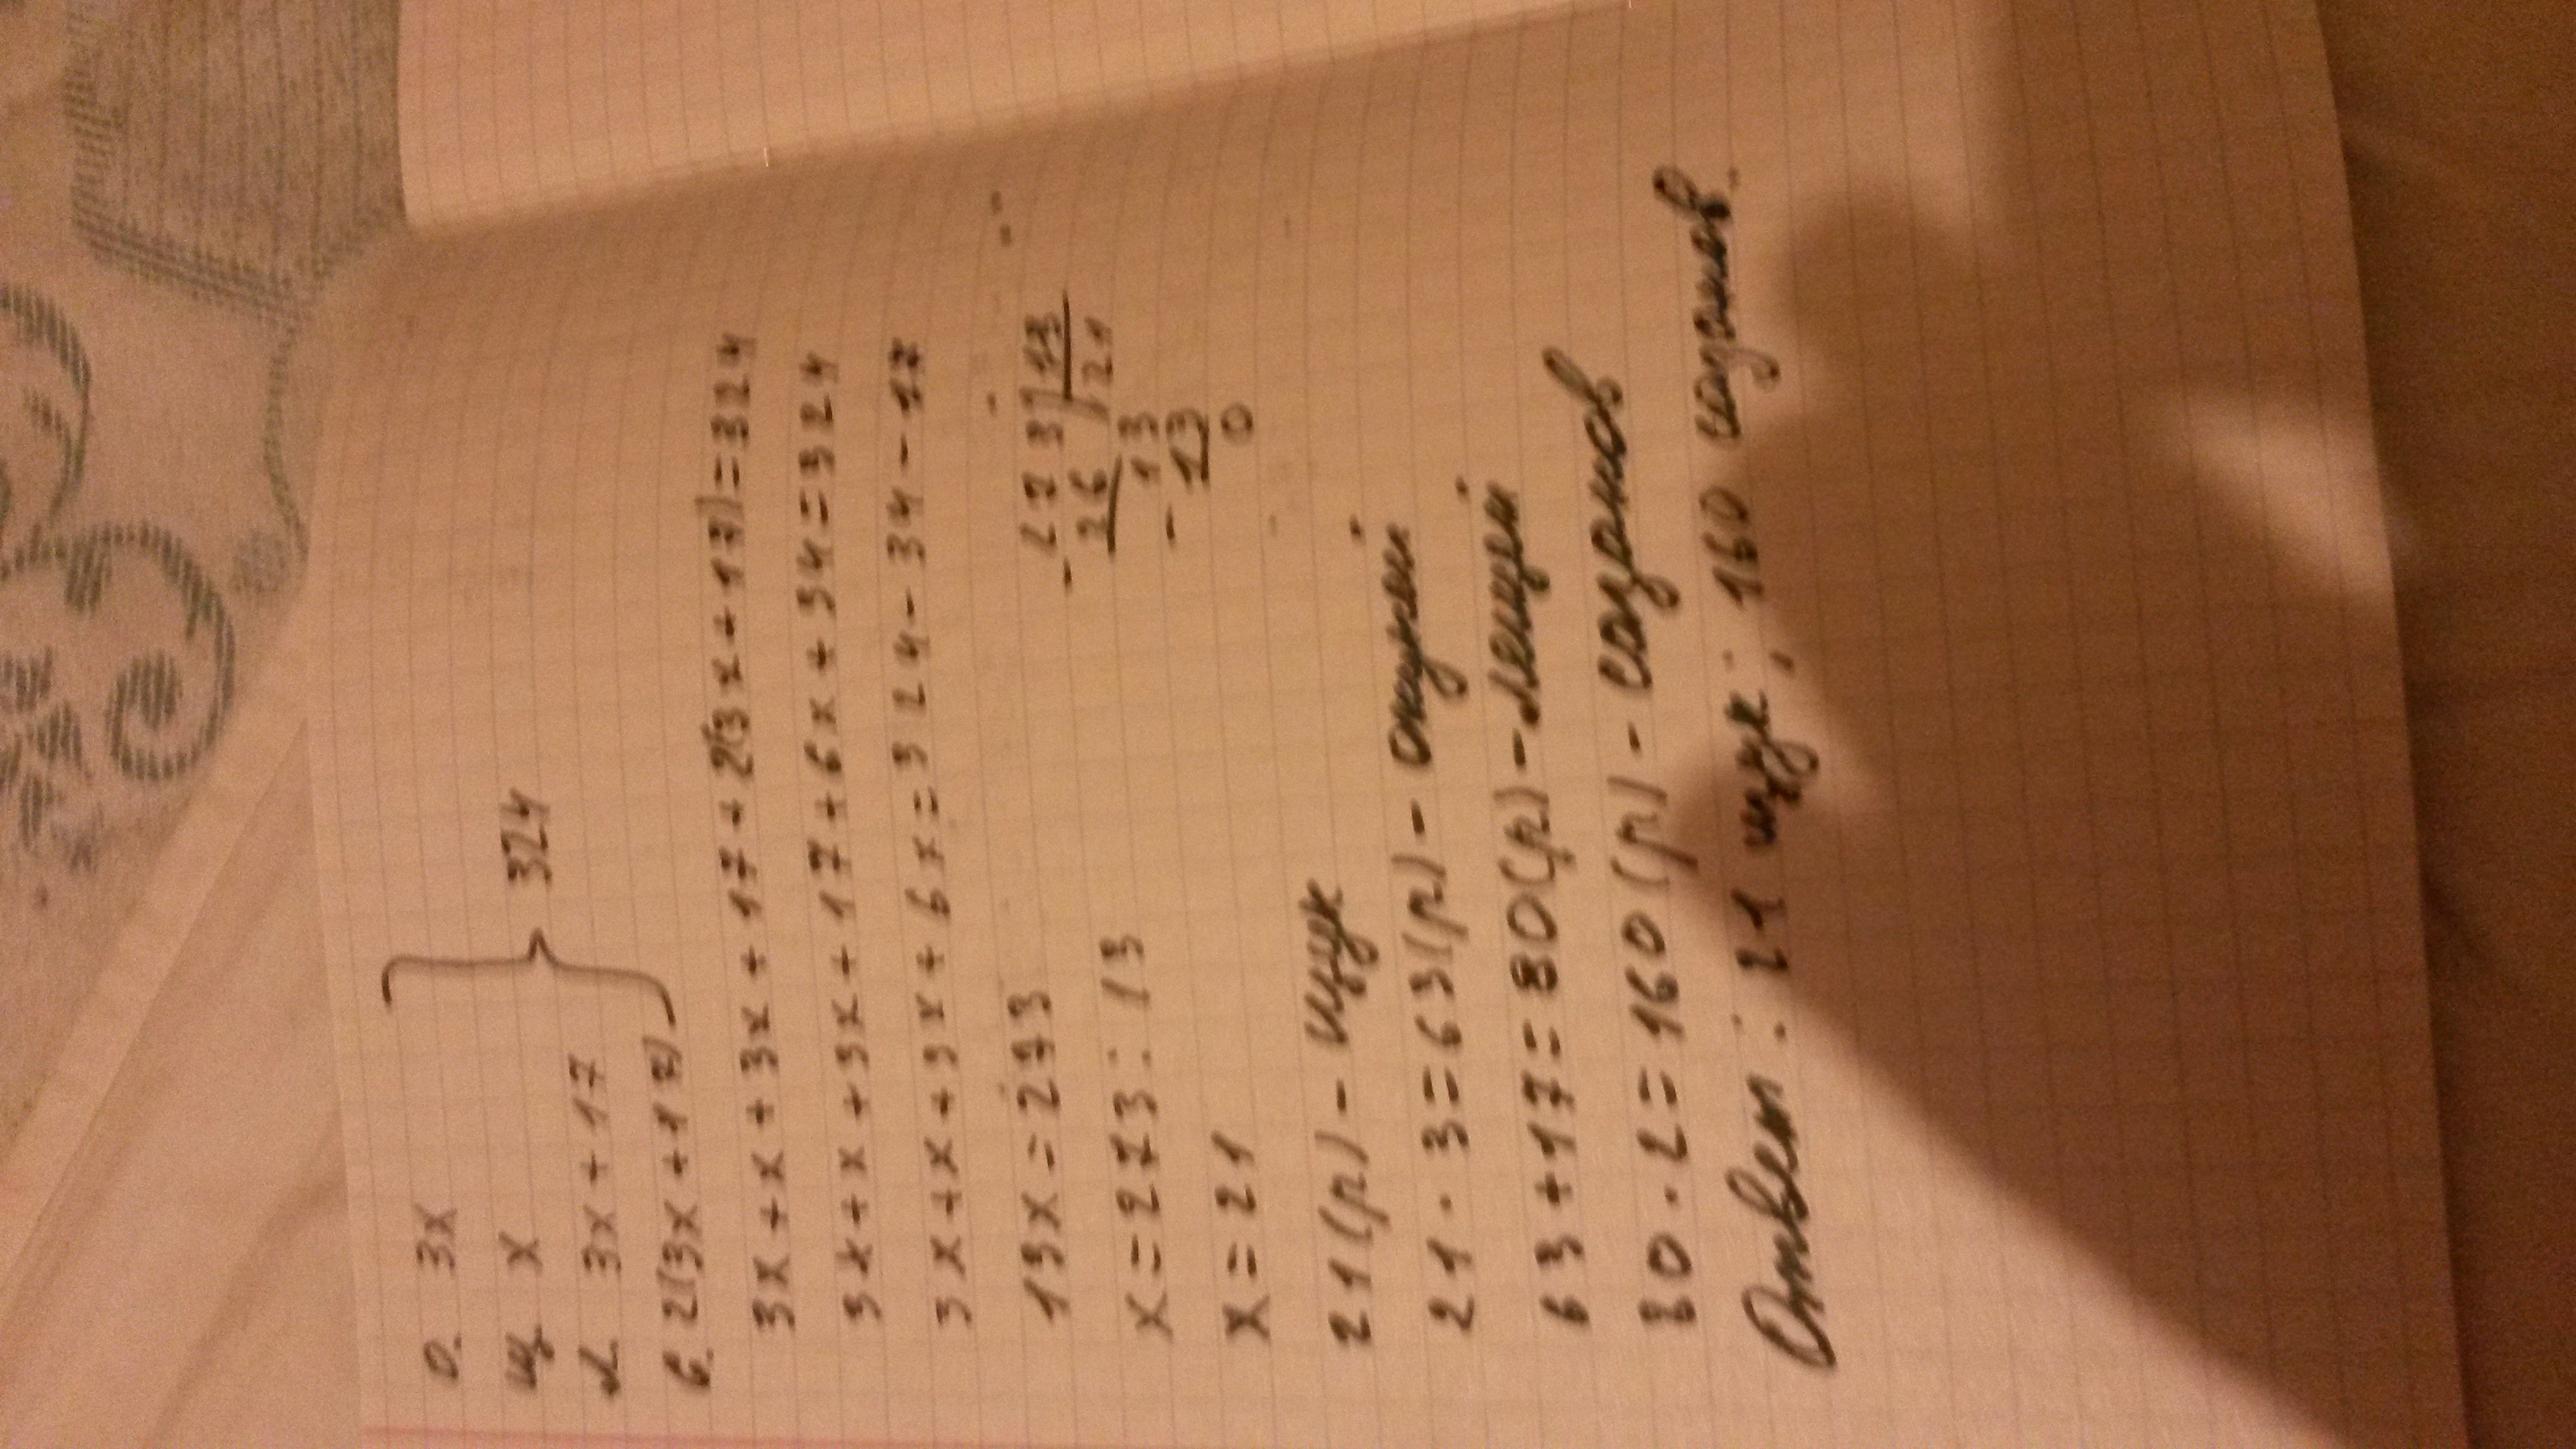 о. 3x
щ x
л. 3x+17
с. 2(3x+17)
324
3x+x+3x+17+2(3x+17)=324
3x+x+3x+17+6x+34=324
3x+x+3x+6x=324-34-17
13x=273
x=273:13
x=21
-273|13
26|21
-13
13
0
21(р)-щук
21·3=63(р)-окуней
63+17=80(р)-лещей
80·2=160(р)-сазанов
Ответ: 21 щук; 160 сазанов.